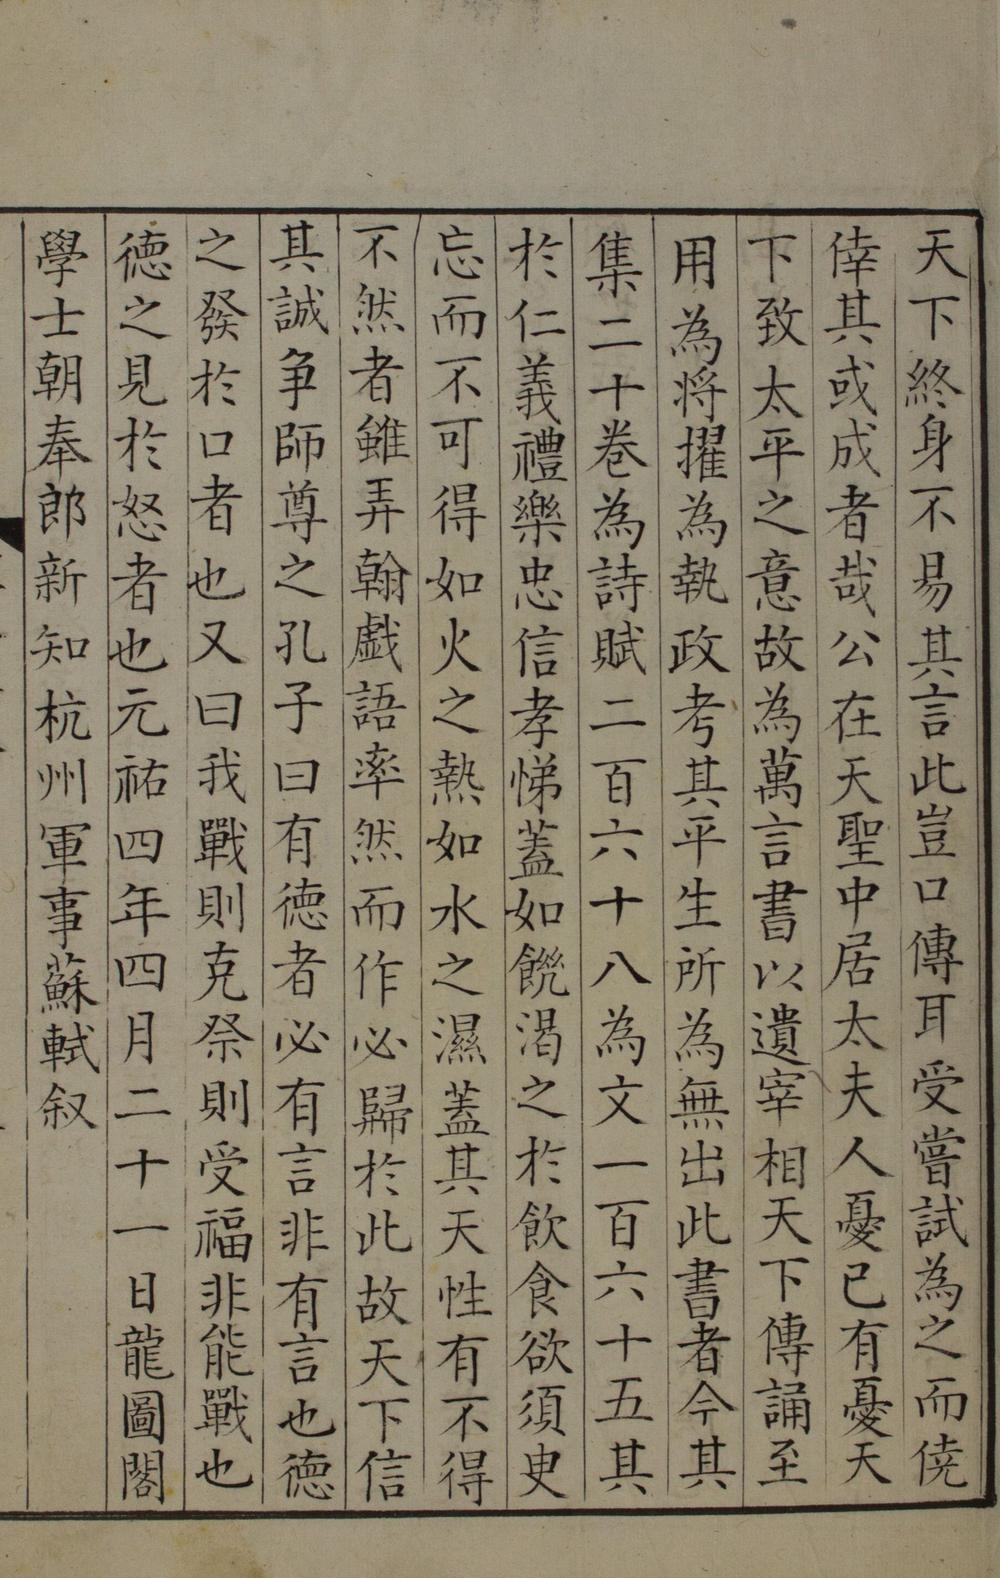 天下終身不易其言此豈口傳耳受嘗試為之而僥
倖其或成者哉公在天聖中居太夫人憂已有憂天
下致太平之意故為萬言書以遺宰相天下傳誦至
用為将擢為執政考其平生所為無出此書者今其
集二十卷為詩賦二百六十八為文一百六十五其
於仁義禮樂忠信孝悌蓋如饑渴之於飲食欲須臾
忘而不可得如火之熱如水之濕蓋其天性有不得
不然者雖弄翰戲語率然而作必歸於此故天下信
其誠争師尊之孔子曰有德者必有言非有言也德
之發於口者也又曰我戰則克祭則受福非能戰也
德之見於怒者也元祐四年四月二十一日龍圖閣
學士朝奉郎新知杭州軍事蘇軾叙